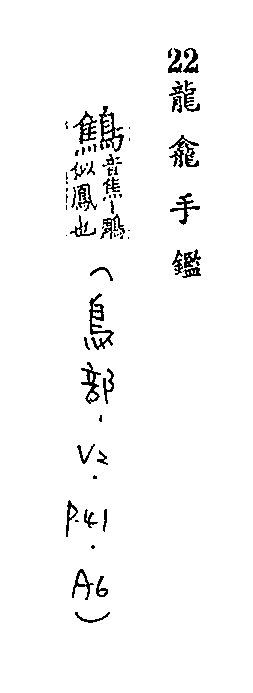 22龍龕手鑑
鷦音焦丨鵬
似鳳也
(鳥部.V2.P.41.A6)